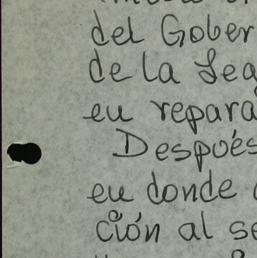 del Gober
de la Sea
eu repara
Despoés
eu donde
ción al se